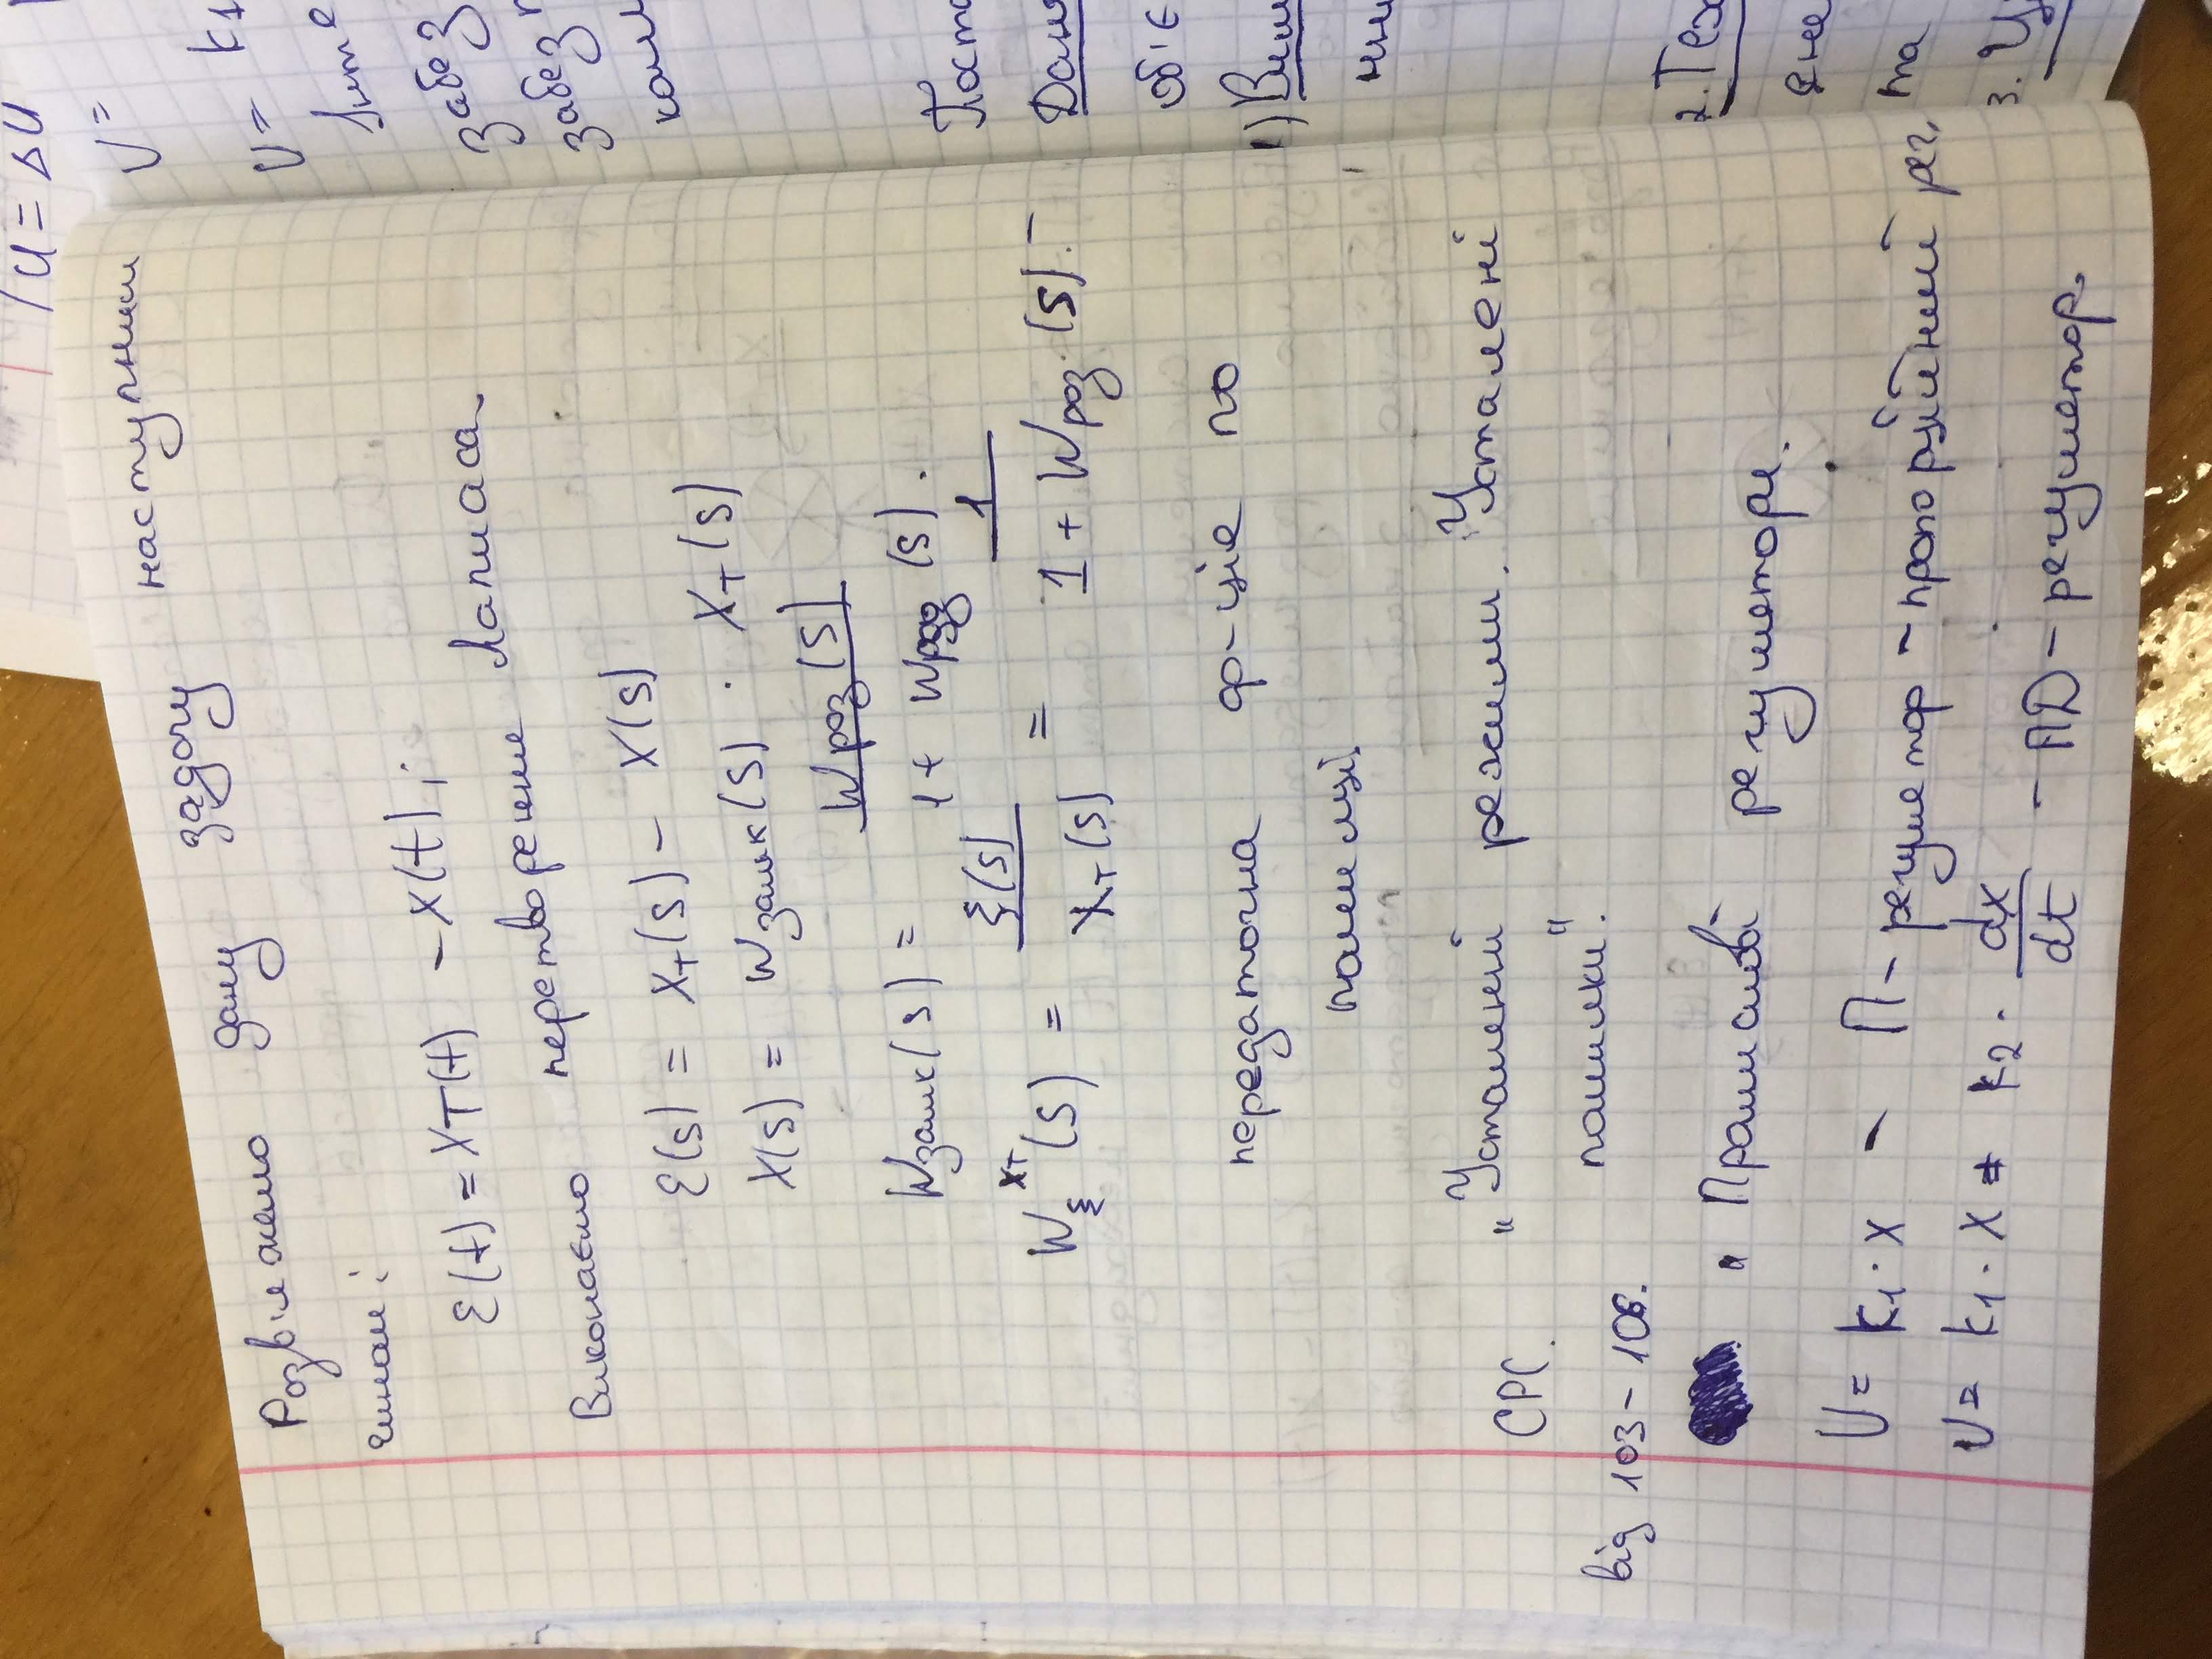 Розв'яжемо дану задачу наступним
чином:
ε(t) = XT(t) - X(t);
Виконаємо перетворення Лапласа
ε(s) = XT(s) - X(s)
X(s) = Wзамк(s) · XT(s)
Wзамк(s) = Wроз(s) / 1 + Wроз(s).
Wε^XT(s) = ε(s) / XT(s) = 1 / 1 + Wроз.(s). -
передаточна ф-ція по
помилці.
СРС. "Усталений режими. Усталені
помилки".
від 103 - 106.
" Промислові регулятори.
U = k1 · x - П - регулятор - пропорційний рег.
U = k1 · x + k2 · dx/dt - ПД - регулятор.
/ U = ΔU
U =
U = k1
Інте
забез
забезп
ком
Поста
Дан
об'є
1) Вим
нни
2. Тех
та
3.